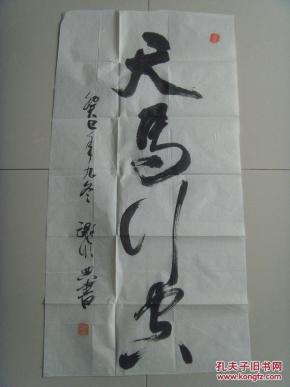 天马行空
癸巳年九冬
书
孔夫子旧书网